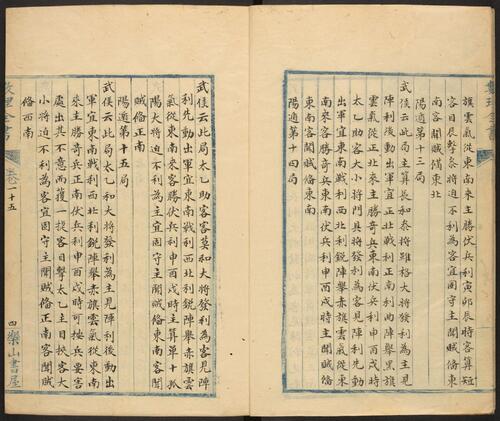 旗雲氣從東南來主勝伏兵利寅卯辰時客算短
客目辰擊泰將迫不利為客宜固守主聞賊偹東
南客聞賊偹東北
陽遁第十三局
武侯云此局主算長和泰將雖格大將發利為主見
陣利後動出軍宜正北戰利正南利曲陣舉黑旗
雲氣從正北來主勝奇兵東南伏兵利申酉戌時
太乙助客大小將門具將發利為客見陣利先動
出軍宜東南戰利西北利銳陣舉赤旗雲氣從東
南來客勝奇兵東南伏兵利申酉戌時主聞賊偹
東南客聞賊偹東南
陽遁第十四局
武侯云此局太乙助客客算和大將發利為客見陣
利先動出軍宜東南戰利西北利銳陣舉赤旗雲
氣從東南來客勝伏兵利申酉戌時主算單十孤
陽大將迫不利為主宜固守主聞賊偹東南客聞
賊偹正南
陽遁第十五局
武侯云此局太乙和大將發利為主見陣利後動出
軍宜東南戰利西北利銳陣舉赤旗雲氣從東南
來主勝奇兵正南伏兵利申酉戌時可按兵要害
處出其不意而獲一捉客目擊太乙主目挾客大
小將迫不利為客宜固守主聞賊偹正南客聞賊
偹西南
卷一十五
四樂山書屋